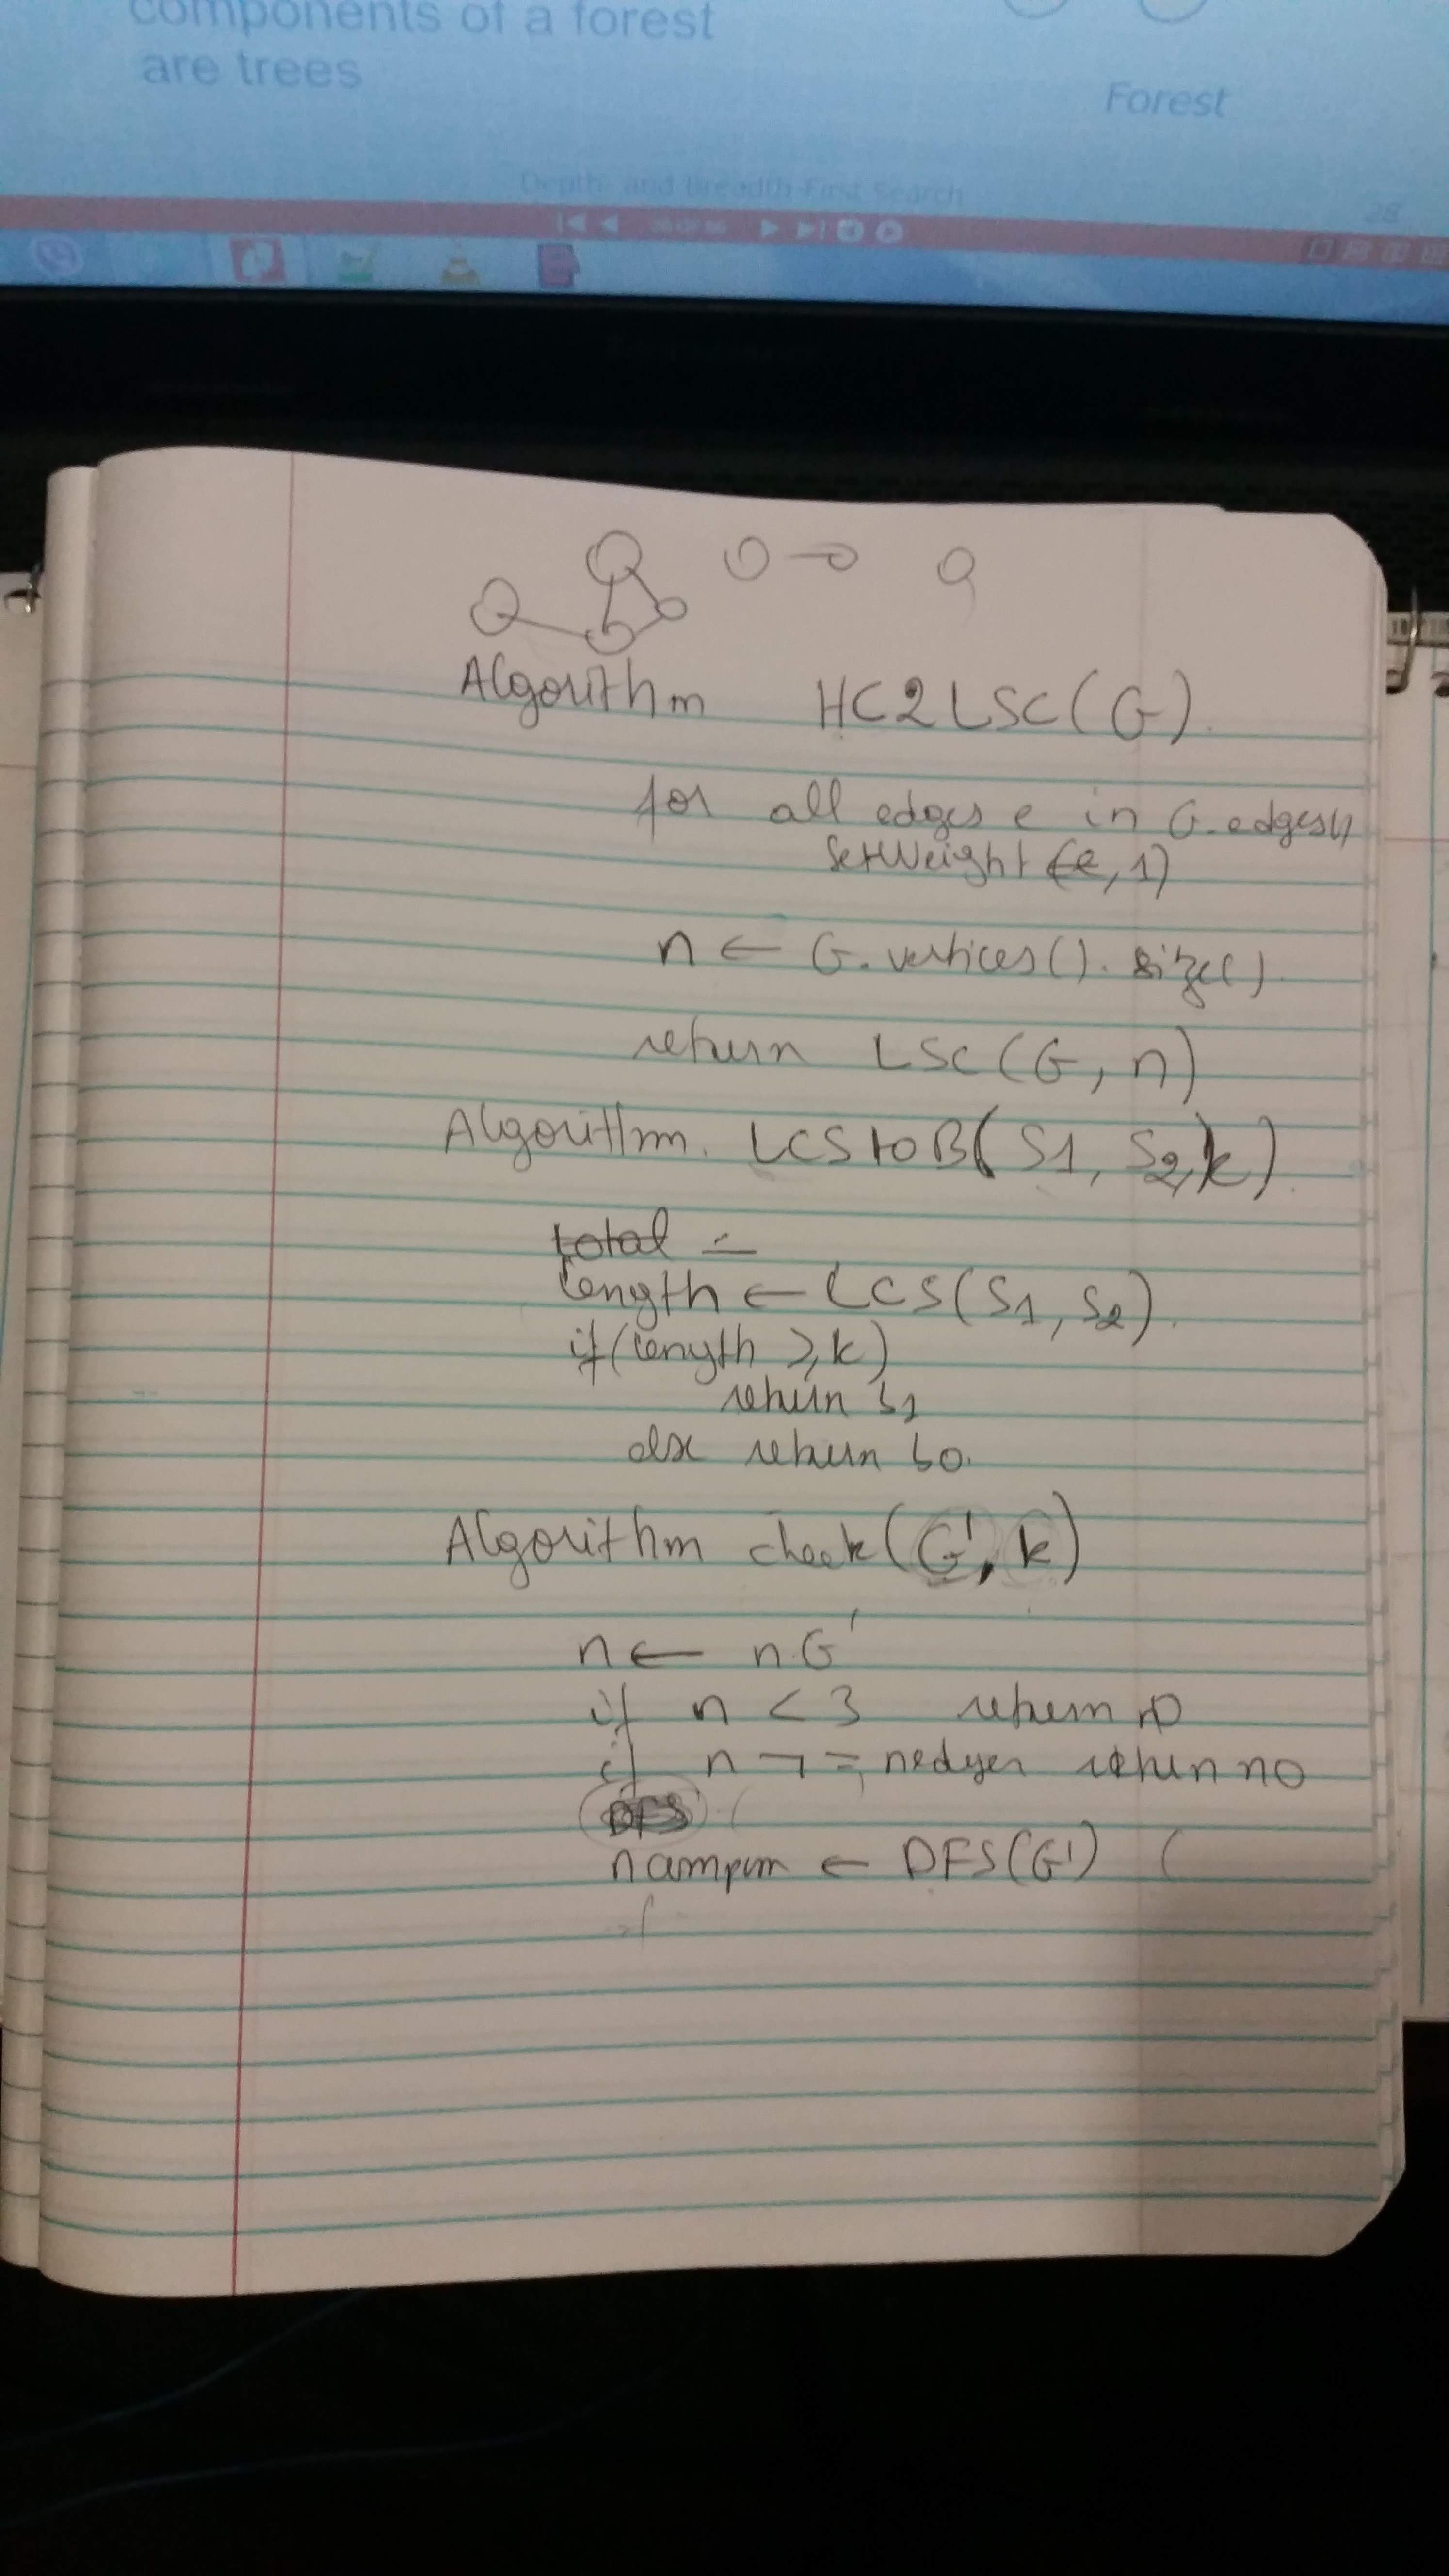 components of a forest
are trees
Forest
Depth- and Breadth-First Search
28
Algorithm HC2LSC(G).
for all edges e in G.edges()
SetWeight (e, 1)
n ← G.vertices().size()
return LSC(G, n)
Algorithm. LCS to B(S1, S2, k).
total =
length ← LCS(S1, S2).
if(length ≥ k)
return S1
else return S0.
Algorithm check(G', k)
n ← n.G'
if n < 3 return
if n ¬ = return no
DFS
← DFS(G') (